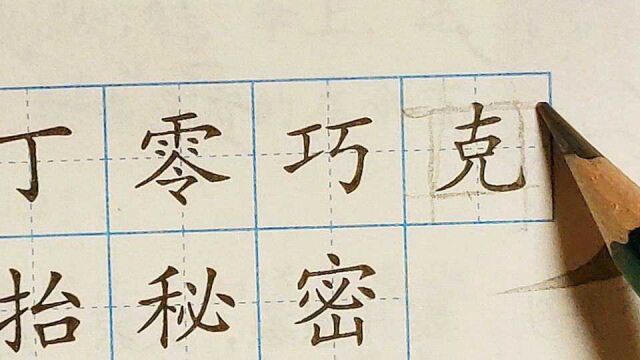 丁零巧克
抬秘密